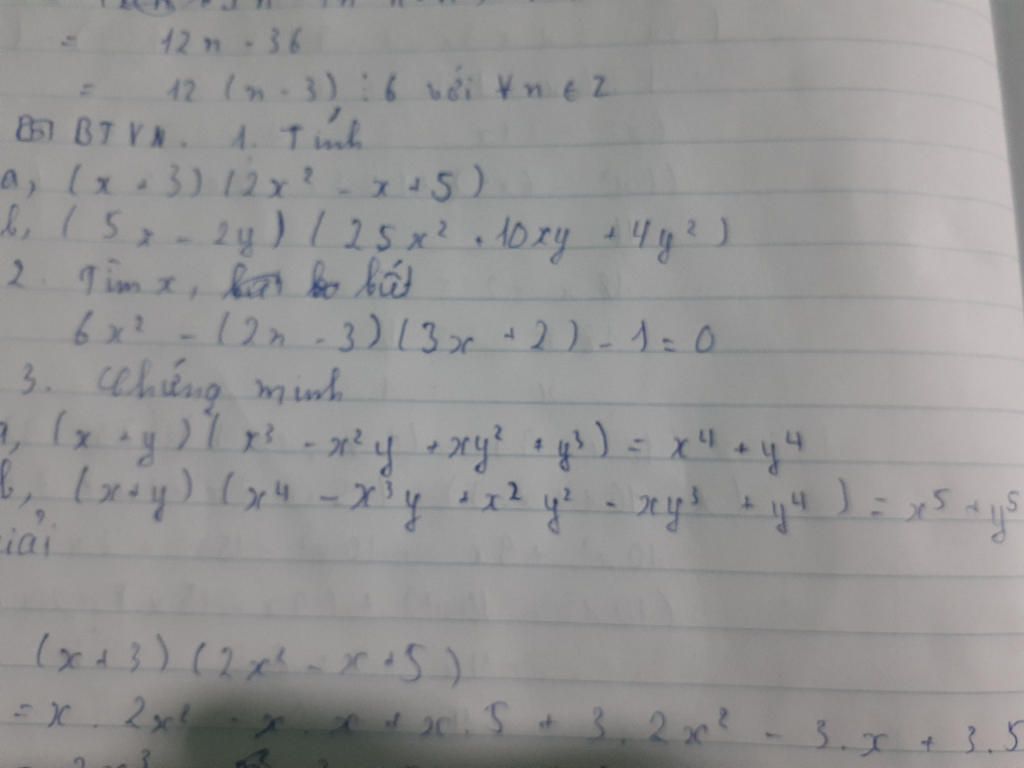 = 12n - 36
= 12 (n - 3) ⋮ 6 với ∀ n ∈ Z
BTVN. 1. Tính
a, (x + 3) (2x² - x + 5)
b, (5x - 2y) (25x² + 10xy + 4y²)
2. Tìm x, biết
6x² - (2x - 3) (3x + 2) - 1 = 0
3. Chứng minh
a, (x + y) (x³ - x²y + xy² + y³) = x⁴ + y⁴
b, (x + y) (x⁴ - x³y + x²y² - xy³ + y⁴) = x⁵ + y⁵
iải
(x + 3) (2x² - x + 5)
= x . 2x² - x . x + x . 5 + 3 . 2x² - 3 . x + 3 . 5